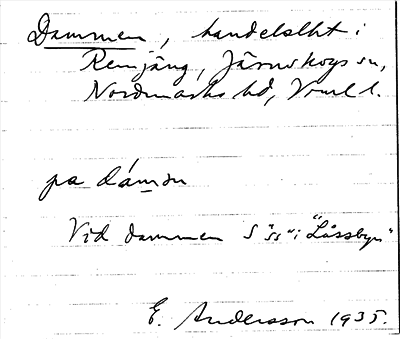 Dammen, handelslht i
Remjäng, Järnskogs sn,
Nordmarks hd, Vrml l.
pa dámən
Vid dammen S "ss" i "Låssbyn"
E. Andersson 1935.